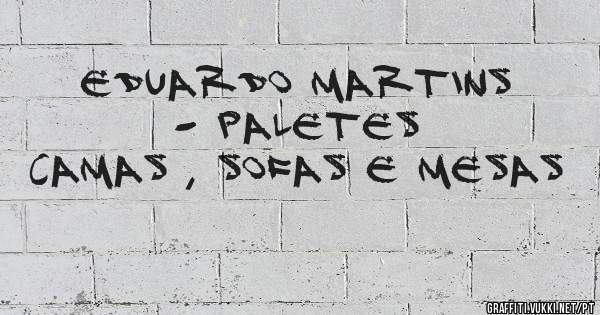 EDUARDO MARTINS
- PALETES
CAMAS , SOFAS E MESAS
GRAFFITI.VUKKI.NET/PT